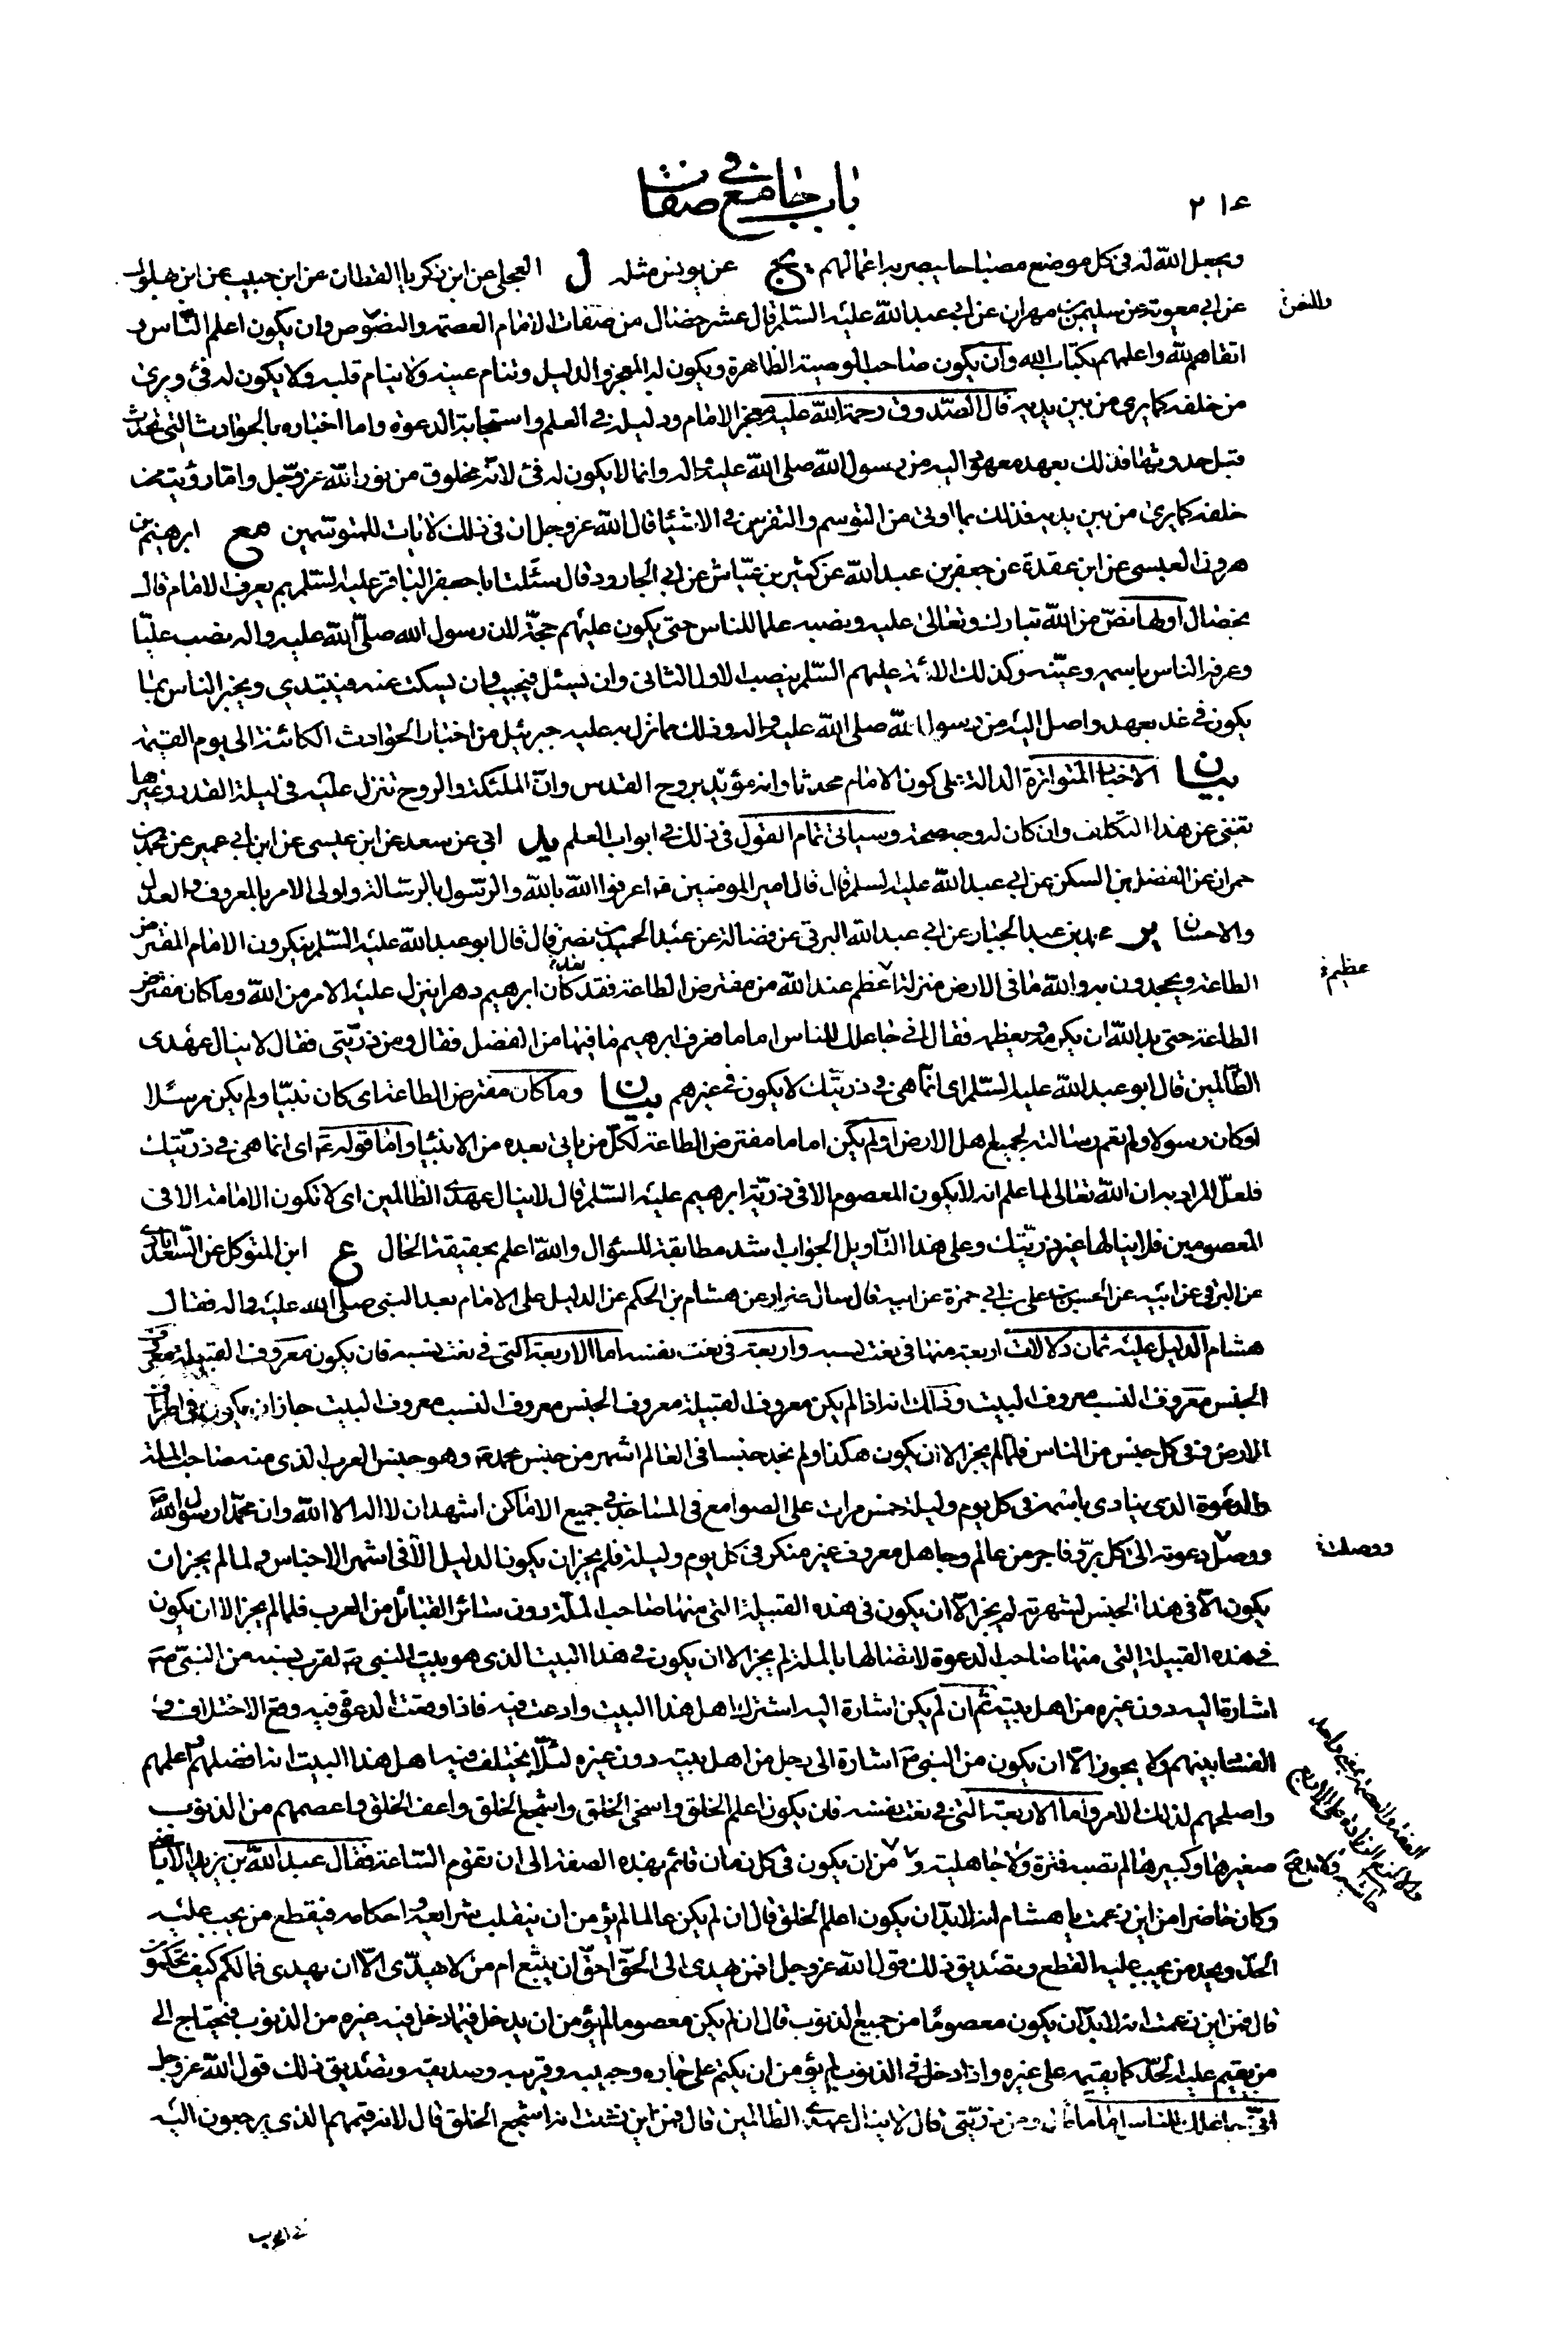 باب جامع في صفات
٢١٤
ويجعل الله له في كل موضع مصباحا يبصر به اعمالهم يج عن يونس مثله ل العجلي عن ابن زكريا القطان عن ابن حبيب عن ابن بهلول
عن ابي معوية عن سليمن بن مهران عن ابي عبد الله عليه السلم قال عشر خصال من صفات الامام العصمة والنصوص وان يكون اعلم الناس و
اتقاهم لله واعلمهم بكتاب الله وان يكون صاحب الوصية الظاهرة ويكون له المعجز والدليل وتنام عينه ولا ينام قلبه ولا يكون له فئ ويرى
من خلفه كما يرى من بين يديه قال الصدوق رحمة الله عليه معجز الامام ودليله في العلم واستجابة الدعوة واما اخباره بالحوادث التي تحدث
قبل حدوثها فذلك بعهد معهود اليه من رسول الله صلى الله عليه واله وانما لا يكون له فئ لانه مخلوق من نور الله عز وجل واما رؤيته من
خلفه كما يرى من بين يديه فذلك بما اوتي من التوسم والتفرس في الاشيا قال الله عز وجل ان في ذلك لايات للمتوسمين مع ابرهيم بن
هرون العبسي عن ابن عقدة عن جعفر بن عبد الله عن كثير بن عياش عن ابي الجارود قال سئلت ابا جعفر الباقر عليه السلم بم يعرف الامام قال
بخصال اولها نص من الله تبارك وتعالى عليه ونصبه علما للناس حتى يكون عليهم حجة لان رسول الله صلى الله عليه واله نصب عليّا
وعرفه الناس باسمه وعيّنه وكذلك الائمة عليهم السلم ينصب الاول الثاني وان يسئل فيجيب وان يسكت عنه فيبتدي ويخبر الناس بما
يكون في غد بعهد واصل اليه من رسول الله صلى الله عليه واله وذلك مما نزل به عليه جبرئيل من اخبار الحوادث الكائنة الى يوم القيمة
بيان الاخبار المتواترة الدالة على كون الامام محدثا وانه مؤيد بروح القدس وان الملئكة والروح تنزل عليه في ليلة القدر وغيرها
تغني عن هذا التكلف وان كان له وجه صحة وسياتي تمام القول في ذلك في ابواب العلم يل ابي عن سعد عن ابن عيسى عن ابن ابي عمير عن محمد بن
حمران عن الفضل بن السكن عن ابي عبد الله عليه السلم قال قال امير المومنين ع اعرفوا الله بالله والرسول بالرسالة واولي الامر بالمعروف والعدل
والاحسان ير محمد بن عبد الجبار عن ابي عبد الله البرقي عن فضالة عن عبد الحميد بن نصر قال قال ابو عبد الله عليه السلم ينكرون الامام المفترض
الطاعة ويجحدون به والله ما في الارض منزلة اعظم عند الله من مفترض الطاعة فقد كان ابرهيم دهرا ينزل عليه الامر من الله وما كان مفترض
الطاعة حتى بدا لله ان يكرمه ويعظمه فقال اني جاعلك للناس اماما فعرف ابرهيم ما فيها من الفضل فقال ومن ذريتي فقال لا ينال عهدى
الظالمين قال ابو عبد الله عليه السلم اي انما هي في ذريتك لا يكون في غيرهم بيان وما كان مفترض الطاعة اي كان نبيّا ولم يكن مرسلا
او كان رسولا ولم تعم رسالته لجميع اهل الارض او لم يكن اماما مفترض الطاعة لكل من ياتي بعده من الانبيا واما قوله ع اي انما هي في ذريتك
فلعل المراد به ان الله تعالى لما علم انه لا يكون المعصوم الا في ذرية ابرهيم عليه السلم قال لا ينال عهدي الظالمين اي لا تكون الامامة الا في
المعصومين فلا ينالها غير ذريتك وعلى هذا التاويل الجواب اشد مطابقة للسؤال والله اعلم بحقيقة الحال ع ابن المتوكل عن السعدآبادي
عن البرقي عن ابيه عن الحسين بن علي بن ابي حمزة عن ابيه قال سال ضرار عن هشام بن الحكم عن الدليل على الامام بعد النبي صلى الله عليه واله فقال
هشام الدليل عليه ثمان دلالات اربعة منها في نعت نسبه واربعة في نعت نفسه اما الاربعة التي في نعت نسبه فان يكون معروف القبيلة معروف
الجنس معروف النسب معروف البيت وذلك انه اذا لم يكن معروف القبيلة معروف الجنس معروف النسب معروف البيت جاز ان يكون في اطراف
الارض وفي كل جنس من الناس فلما لم يجز الا ان يكون هكذا ولم نجد جنسا في العالم اشهر من جنس محمد ص وهو جنس العرب الذي منه صاحب الملة
والدعوة الذي ينادى باسمه في كل يوم وليلة خمس مرات على الصوامع في المساجد في جميع الاماكن اشهد ان لا اله الا الله وان محمدا رسول الله ص
ووصل دعوته الى كل بر وفاجر من عالم وجاهل معروف غير منكر في كل يوم وليلة فلم يجز ان يكون الدليل الا في اشهر الاجناس ولما لم يجز ان
يكون الا في هذا الجنس لشهرته لم يجز الا ان يكون في هذه القبيلة التي منها صاحب الملة دون سائر القبائل من العرب فلما لم يجز الا ان يكون
في هذه القبيلة التي منها صاحب الدعوة لاتصالها بالملة لم يجز الا ان يكون في هذا البيت الذي هو بيت النبي ص لقرب نسبه من النبي ص
اشارة اليه دون غيره من اهل بيته ثم ان لم يكن اشارة اليه اشترك اهل هذا البيت وادعت فيه فاذا وقعت الدعوة فيه وقع الاختلاف و
الفسا بينهم ولا يجوز الا ان يكون من النبي ص اشارة الى رجل من اهل بيته دون غيره لئلا يختلف فيه اهل هذا البيت انه افضلهم واعلمهم
واصلحهم لذلك الامر واما الاربعة التي في نعت نفسه فان يكون اعلم الخلق واسخى الخلق واشجع الخلق واعف الخلق واعصمهم من الذنوب
صغيرها وكبيرها لم تصبه فترة ولا جاهلية و من ان يكون في كل زمان قائم بهذه الصفة الى ان تقوم الساعة فقال عبد الله بن يزيد الاباضي
وكان حاضرا من اين زعمت يا هشام انه لابد ان يكون اعلم الخلق قال ان لم يكن عالما لم يؤمن ان ينقلب شرايعه واحكامه فيقطع من يجب عليه
الحد ويحد من يجب عليه القطع وتصديق ذلك قول الله عز وجل افمن يهدي الى الحق احق ان يتبع ام من لا يهدّى الا ان يهدى فما لكم كيف تحكمون
قال فمن اين زعمت انه لابد ان يكون معصومًا من جميع الذنوب قال ان لم يكن معصوما لم يؤمن ان يدخل فيما دخل فيه غيره من الذنوب فيحتاج الى
من يقيم عليه الحد كما يقيمه على غيره واذا دخل في الذنوب لم يؤمن ان يكتم على جاره وحبيبه وقريبه وصديقه وتصديق ذلك قول الله عز وجل
اني جاعلك للناس اماما قال ومن ذريتي قال لا ينال عهدي الظالمين قال فمن اين زعمت انه اشجع الخلق قال لانه قيمهم الذي يرجعون اليه
وللنصن
عظيم
ووصلت
في الحرب